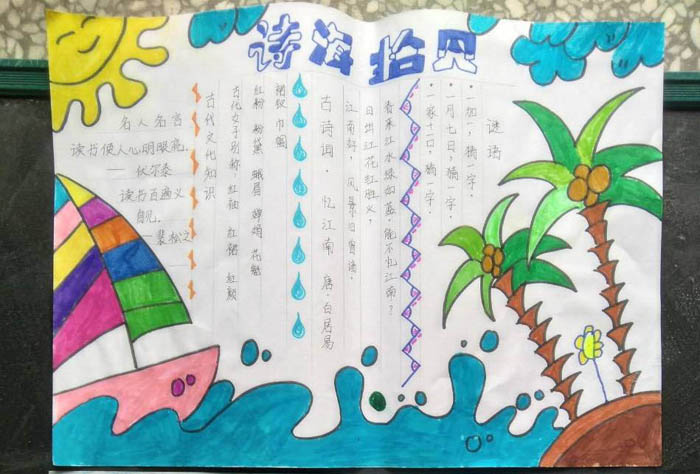 诗海拾贝
名人名言
读书使人心明眼亮。
——伏尔泰
读书百遍义
自见。
——裴松之
古代文化知识
古代女子别称:红袖 红裙 红颜
红粉 粉黛 蛾眉 婵娟 花魁
裙钗 巾帼
古诗词·忆江南 唐·白居易
江南好,风景旧曾谙。
日出江花红胜火,
春来江水绿如蓝,能不忆江南?
谜语
·一加一,猜一字。
·一月七日,猜一字。
·一家十一口,猜一字。